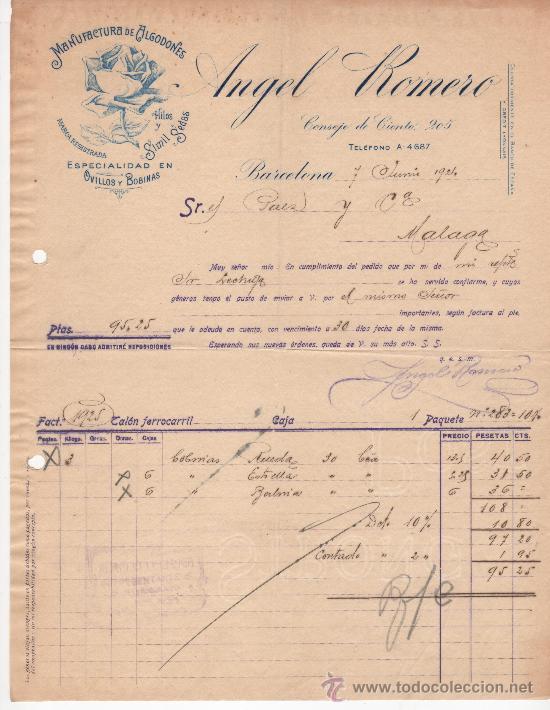 MANUFACTURA DE ALGODONES
Hilos
y
Simil Sedas
MARCA REGISTRADA
ESPECIALIDAD EN
OVILLOS Y BOBINAS
Angel Romero
Consejo de Ciento, 205
TELÉFONO A-4687
Barcelona 7 Junio 1924
Sres Paez y Cª
Malaga
Muy señor mío: En cumplimiento del pedido que por mí de mis
Sr se ha servido confiarme, y cuyos
géneros tengo el gusto de enviar a V. por el mismo Señor
importantes, según factura al pie,
Ptas. 95.25 que le adeudo en cuenta, con vencimiento a 30 días fecha de la misma.
EN NINGÚN CASO ADMITIRÉ REPOSICIONES
Esperando sus nuevas órdenes, queda de V. su más atto. S. S.
q. e. s. m.
Angel Romero
Fact. 1925 Talón ferrocarril Caja 1 Paquete nº 283=10%
Kilogs. Cajas PRECIO PESETAS CTS.
X 3 Colonias Rueda 30 135 40 50
X 6 " Estrella 31 50
X 6 " 6 36 "
108 "
Dto 10% 10 80
97 20
Contado " 2 " 1 95
95 25
www.todocoleccion.net